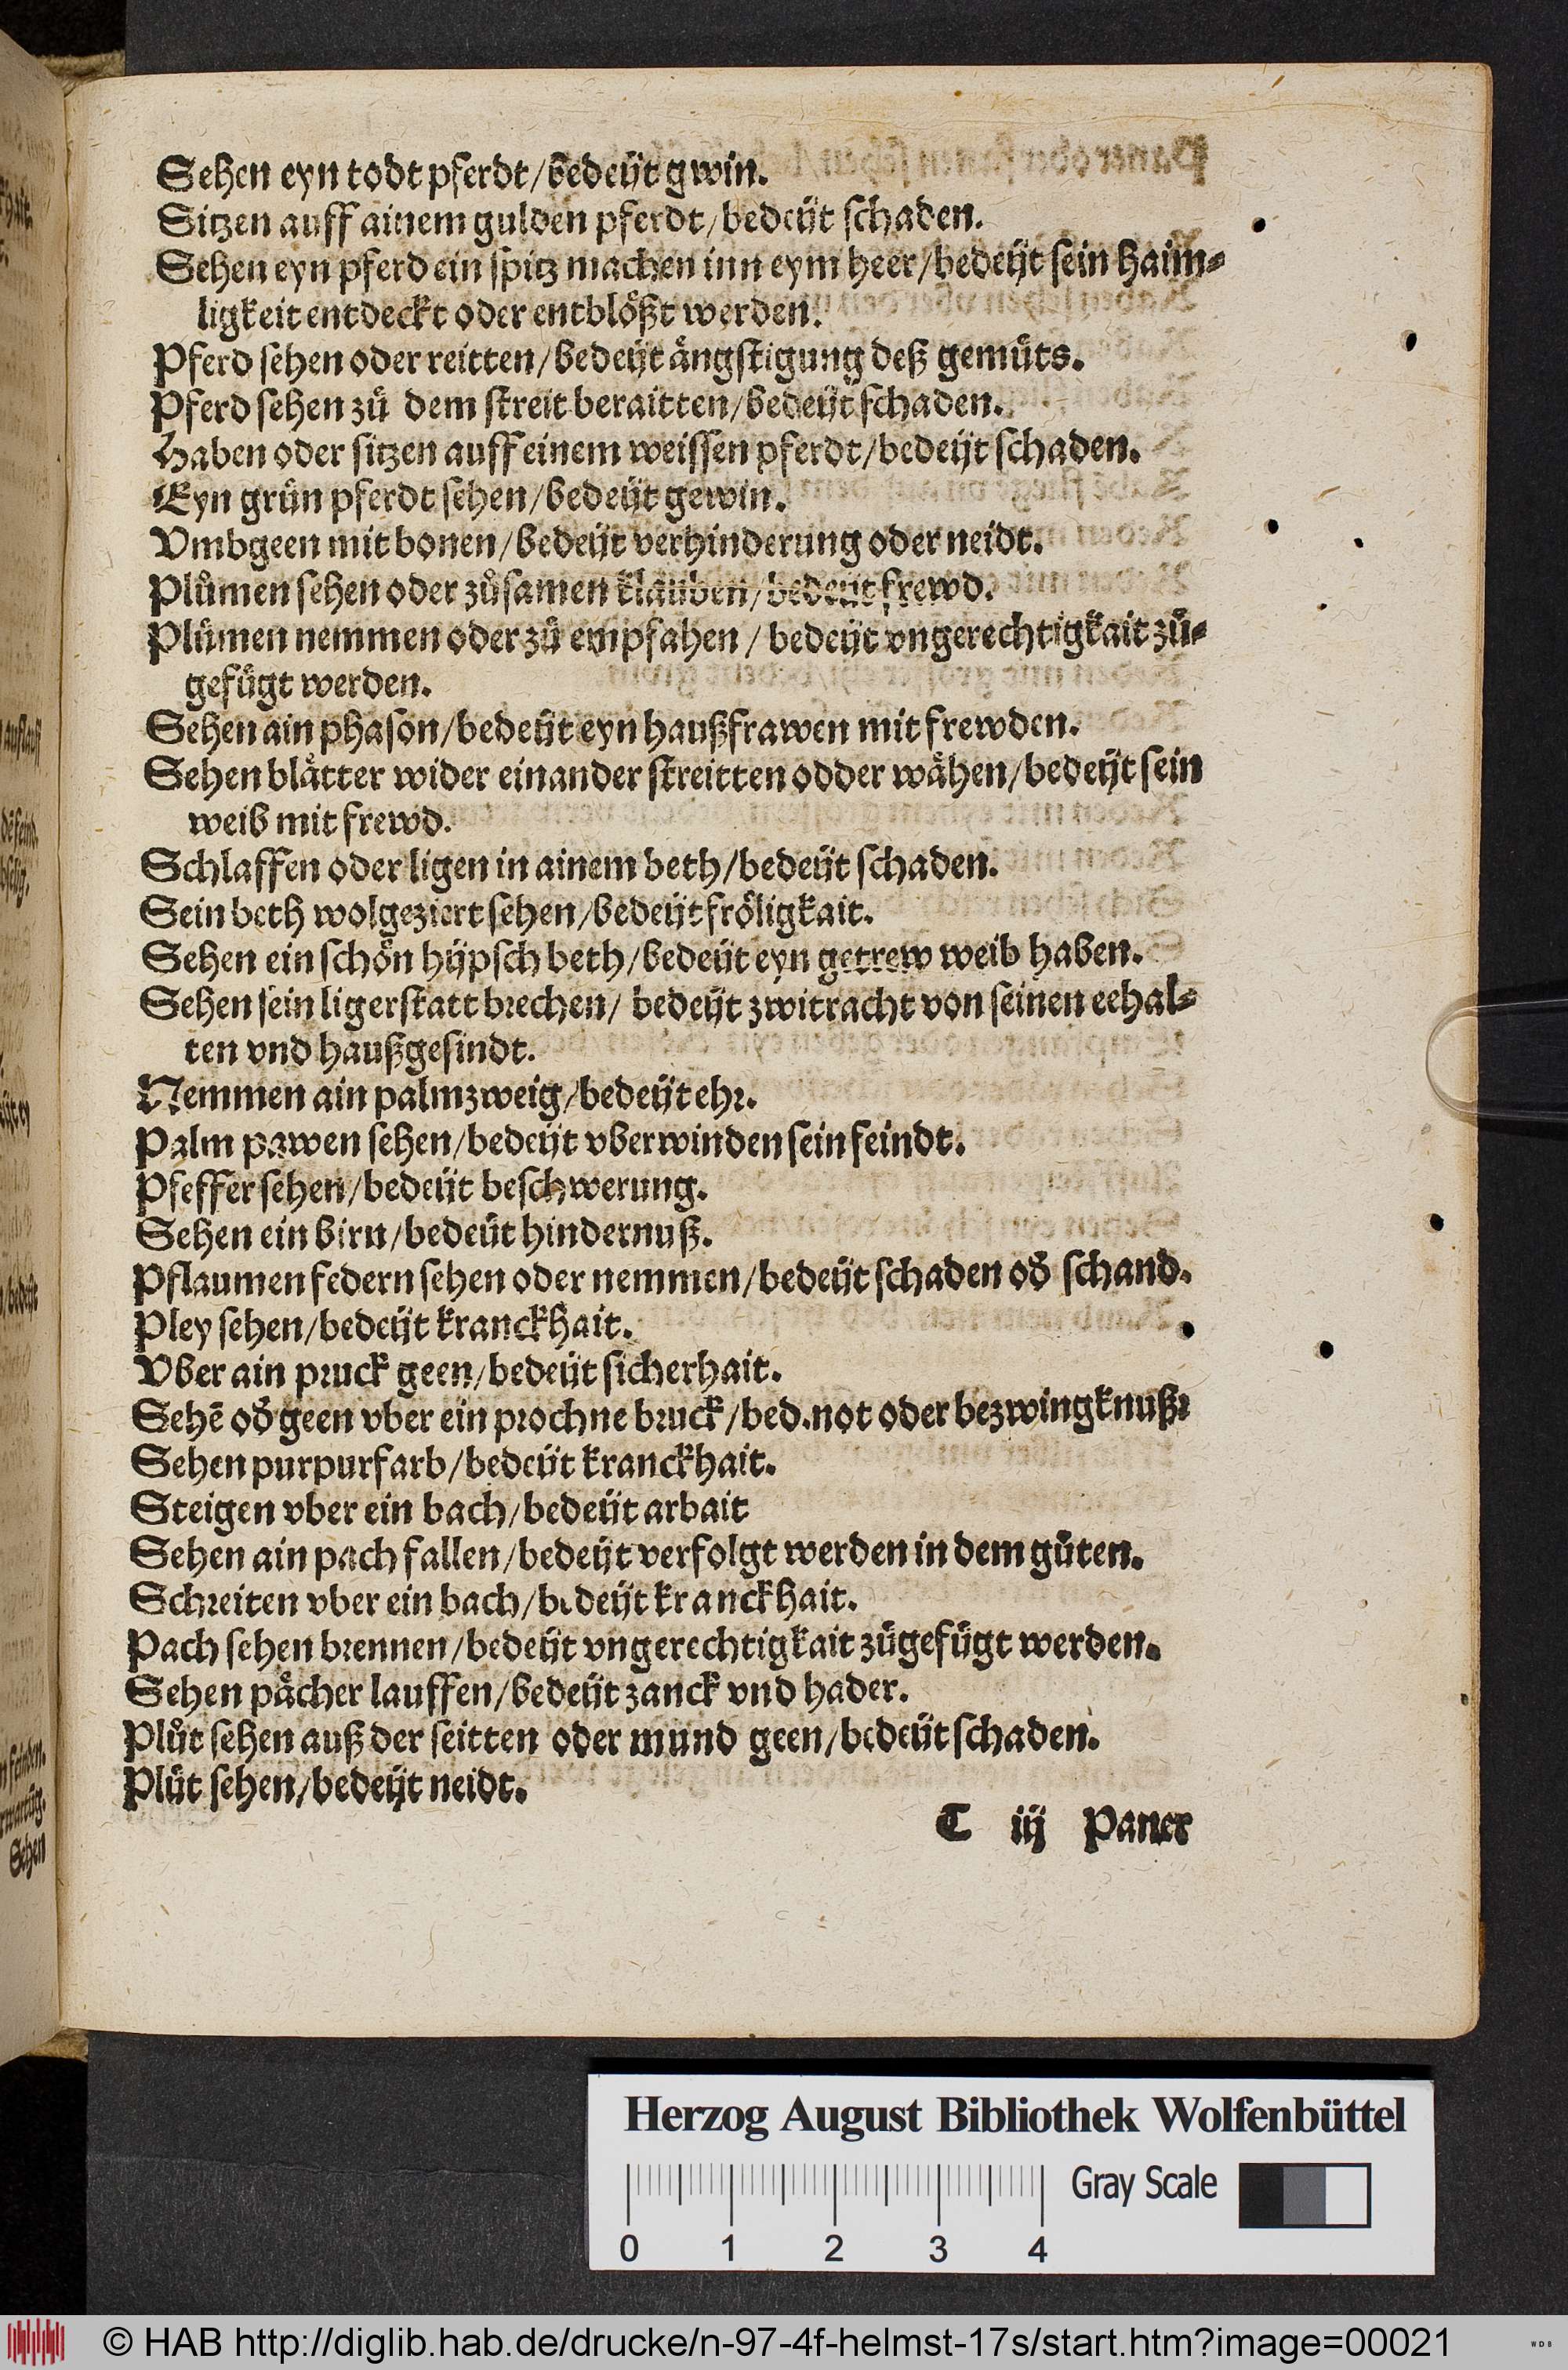 Sehen eyn todt pferdt/bedeüt gwin.
Sitzen auff ainem gulden pferdt/bedeüt schaden.
Sehen eyn pferd ein spitz machen inn eym heer/bedeüt sein haim⸗
ligkeit entdeckt oder entblößt werden.
Pferd sehen oder reitten/bedeüt ängstigung deß gemüts.
Pferd sehen zů dem streit beraitten/bedeüt schaden.
Haben oder sitzen auff einem weissen pferdt/bedeüt schaden.
Eyn grün pferdt sehen/bedeüt gewin.
Vmbgeen mit bonen/bedeüt verhinderung oder neidt.
Plůmen sehen oder zůsamen klauben/bedeüt frewd.
Plůmen nemmen oder zů empfahen / bedeüt vngerechtigkait zů⸗
gefügt werden.
Sehen ain phason/bedeüt eyn haußfrawen mit frewden.
Sehen blätter wider einander streitten odder wähen/bedeüt sein
weib mit frewd.
Schlaffen oder ligen in ainem beth/bedeüt schaden.
Sein beth wolgeziert sehen/bedeüt fröligkait.
Sehen ein schön hüpsch beth/bedeüt eyn getrew weib haben.
Sehen sein ligerstatt brechen/ bedeüt zwitracht von seinen eehal⸗
ten vnd haußgesindt.
Nemmen ain palmzweig/bedeüt ehr.
Palm pawen sehen/bedeüt vberwinden sein feindt.
Pfeffer sehen/bedeüt beschwerung.
Sehen ein birn/bedeüt hindernuß.
Pflaumen federn sehen oder nemmen/bedeüt schaden od̓ schand.
Pley sehen/bedeüt kranckhait.
Vber ain pruck geen/bedeüt sicherhait.
Sehē od̓ geen vber ein prochne bruck/bed.not oder bezwingknuß.
Sehen purpurfarb/bedeüt kranckhait.
Steigen vber ein bach/bedeüt arbait
Sehen ain pach fallen/bedeüt verfolgt werden in dem gůten.
Schreiten vber ein bach/bedeüt kranckhait.
Pach sehen brennen/bedeüt vngerechtigkait zůgefügt werden.
Sehen pächer lauffen/bedeüt zanck vnd hader.
Plůt sehen auß der seitten oder mund geen/bedeüt schaden.
Plůt sehen/bedeüt neidt.
C iij Paner
Herzog August Bibliothek Wolfenbüttel
Gray Scale
0 1 2 3 4
© HAB http://diglib.hab.de/drucke/n-97-4f-helmst-17s/start.htm?image=00021